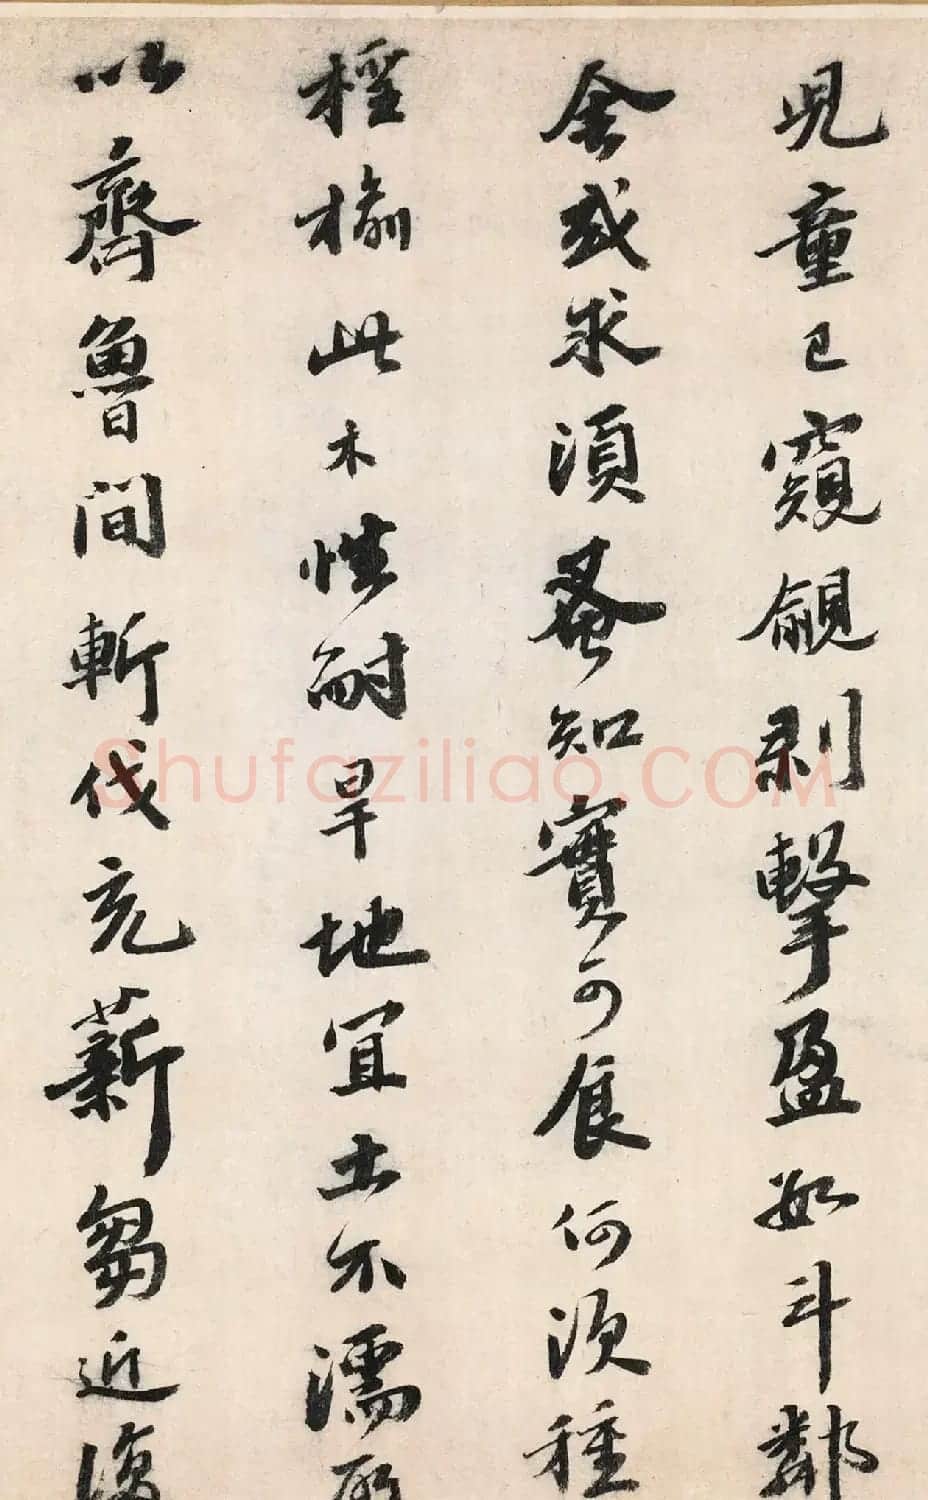 兒童已窺覦剝擊盈數斗鄰
舍或求須蚤知實可食何須種
檉榆此木性耐旱地宜土不濡所
以齊魯間斬伐充薪芻近復
Shufaziliao.COM